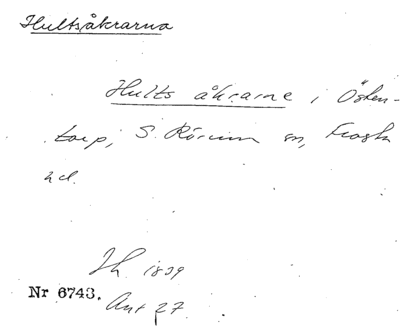 Hultsåkrarna
Hults åkrarne i Östen-
torp, S. Rörum sn, Frosta
hd.
Jh 1839
Nr 6743.
Ant 27.